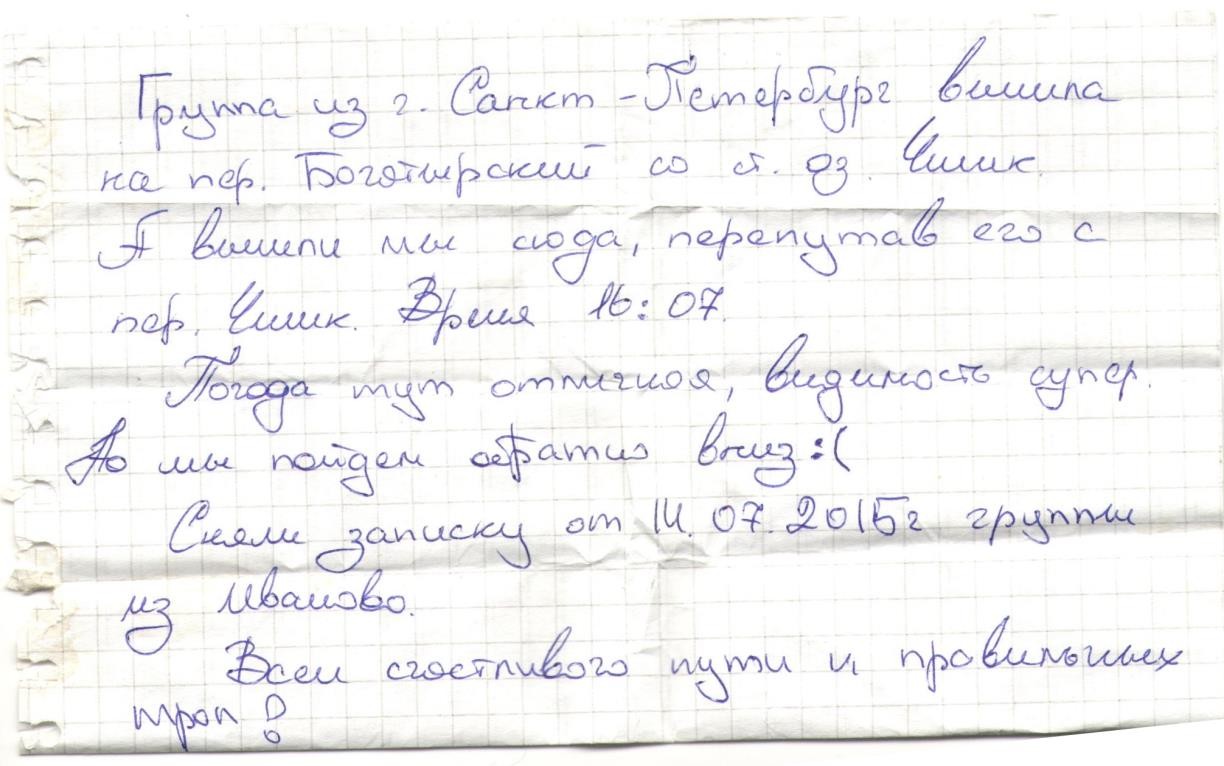 Группа из г. Санкт-Петербург вышла
на пер. Богатырский со ст. оз. Чишк.
А вышли мы сюда, перепутав его с
пер. Чишк. Время 16:07.
Погода тут отличная, видимость супер.
Но мы пойдем обратно вниз :(
Сняли записку от 14.07.2015г группы
из Иваново.
Всем счастливого пути и правильных
троп!